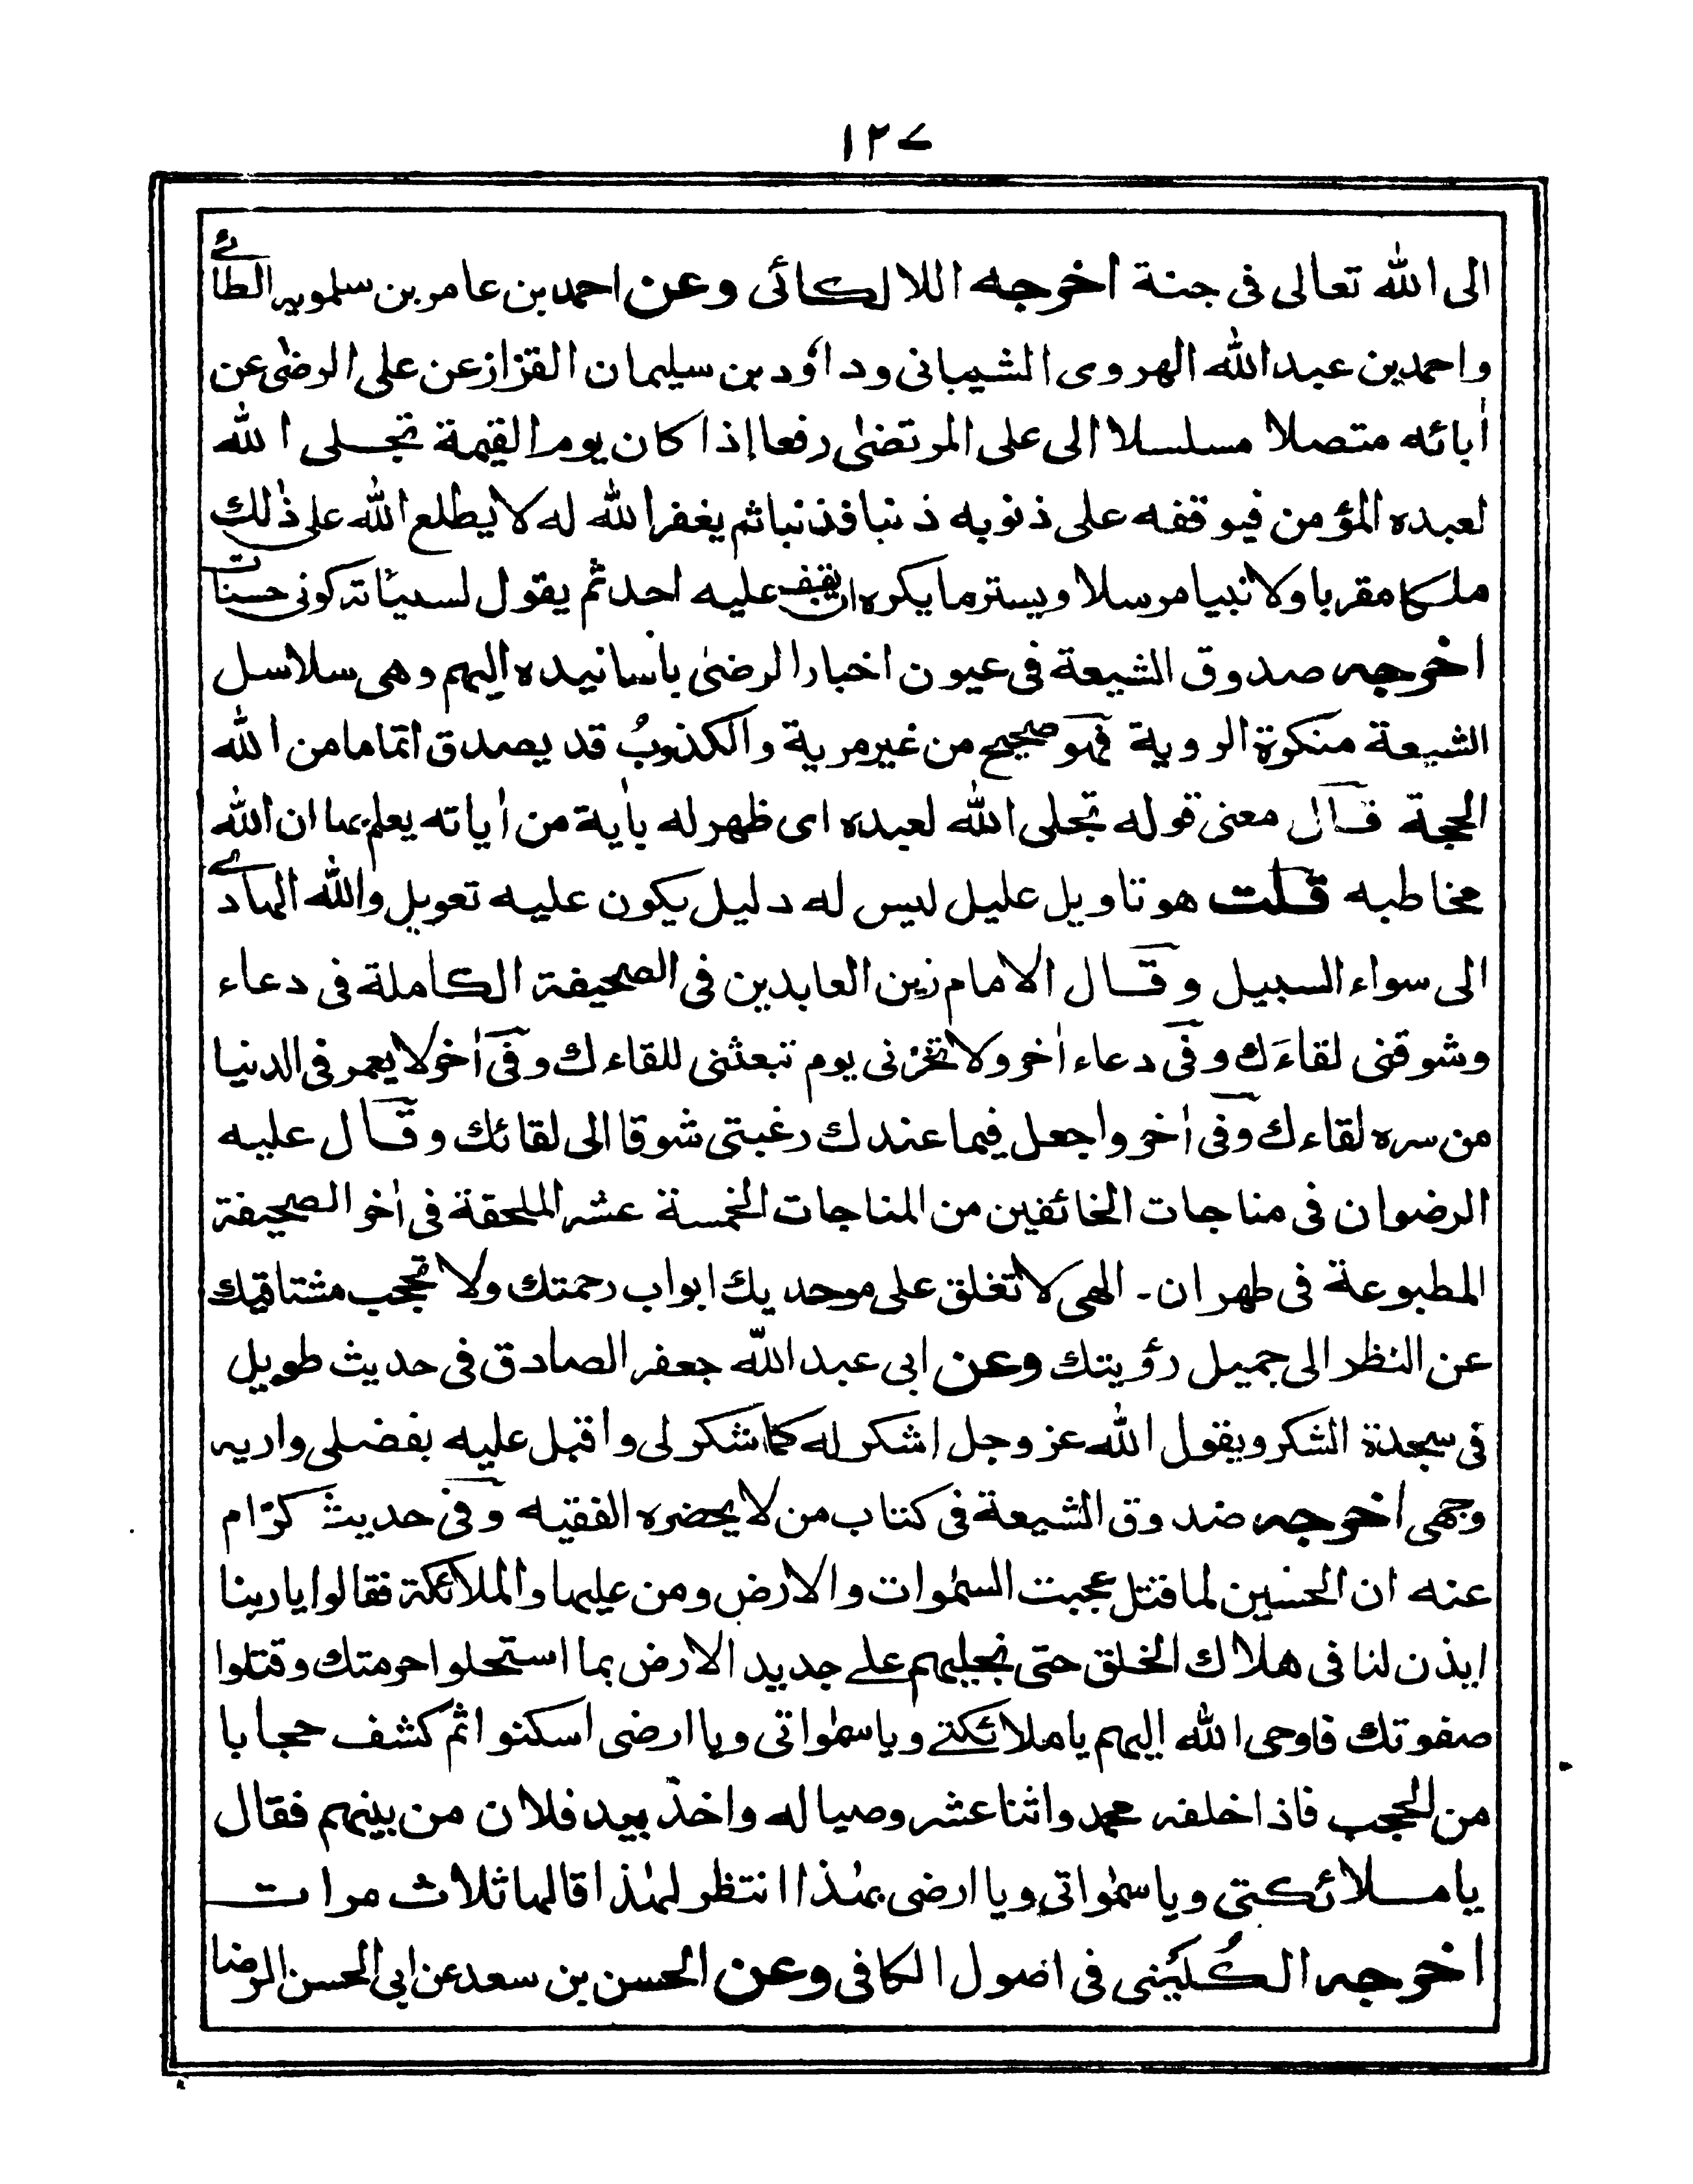 ١٢٧
الى الله تعالى فى جنة اخرجه اللالكائى وعن احمد بن عامر بن سلمويه الطائے
واحمد بن عبد الله الهروى الشيبانى وداوٗد بن سليمان القزاز عن على الرضٰى عن
اٰبائه متصلا مسلسلا الى على المرتضٰى رفعا إذا كان يوم القيمة تجلى الله
لعبده المؤمن فيوقفه على ذنوبه ذنبا فذنبا ثم يغفر الله له لا يطلع الله على ذٰلك
ملكا مقربا ولا نبيا مرسلا ويستر ما يكره ان يقف عليه احد ثم يقول لسيئاته كونى حسنات
اخرجه صدوق الشيعة فى عيون اخبار الرضٰى بأسانيده اليهم وهى سلاسل
الشيعة منكرة الروية فهو صحيح من غير مرية والكذوبُ قد يصدق اتماما من الله
الحجة قال معنى قوله تجلى الله لعبده اى ظهر له بأية من اٰياته يعلم بها ان الله
مخاطبه قلت هو تاويل عليل ليس له دليل يكون عليه تعويل والله الهادے
الى سواء السبيل وقال الامام زين العابدين فى الصحيفة الكاملة فى دعاء
وشوقنى لقاءَك وفى دعاء اٰخر ولا تخزنى يوم تبعثنى للقاءك وفى اٰخر لا يعمر فى الدنيا
من سره لقاءك وفى اٰخر واجعل فيما عندك رغبتى شوقا الى لقائك وقال عليه
الرضوان فى مناجات الخائفين من المناجات الخمسة عشر الملحقة فى اٰخر الصحيفة
المطبوعة فى طهران۔ الهى لا تغلق على موحديك ابواب رحمتك ولا تحجب مشتاقيك
عن النظر الى جميل رؤيتك وعن ابى عبد الله جعفر الصادق فى حديث طويل
فى سجدة الشكر ويقول الله عز وجل اشكر له كما شكر لى واقبل عليه بفضلى واريه
وجهى اخرجه ضدوق الشيعة فى كتاب من لا يحضره الفقيه وفى حديث كرّام
عنه ان الحسين لما قتل عجبت السمٰوات والارض ومن عليها والملائكة فقالوا يا ربنا
ايذن لنا فى هلاك الخلق حتى نجليهم علے جديد الارض بما استحلوا حرمتك وقتلوا
صفوتك فاوحى الله اليهم يا ملائكتے ويا سمٰواتى ويا ارضى اسكنوا ثم كشف حجابا
من الحجب فاذا خلفه محمد واثنا عشر وصيا له واخذ بيد فلان من بينهم فقال
يا ملائكتى ويا سمٰواتى ويا ارضى بهٰذا انتظر لهٰذا قالها ثلاث مرات
اخرجه الكُلَيْنى فى اصول الكافى وعن الحسن بن سعد عن ابى الحسن الرضا